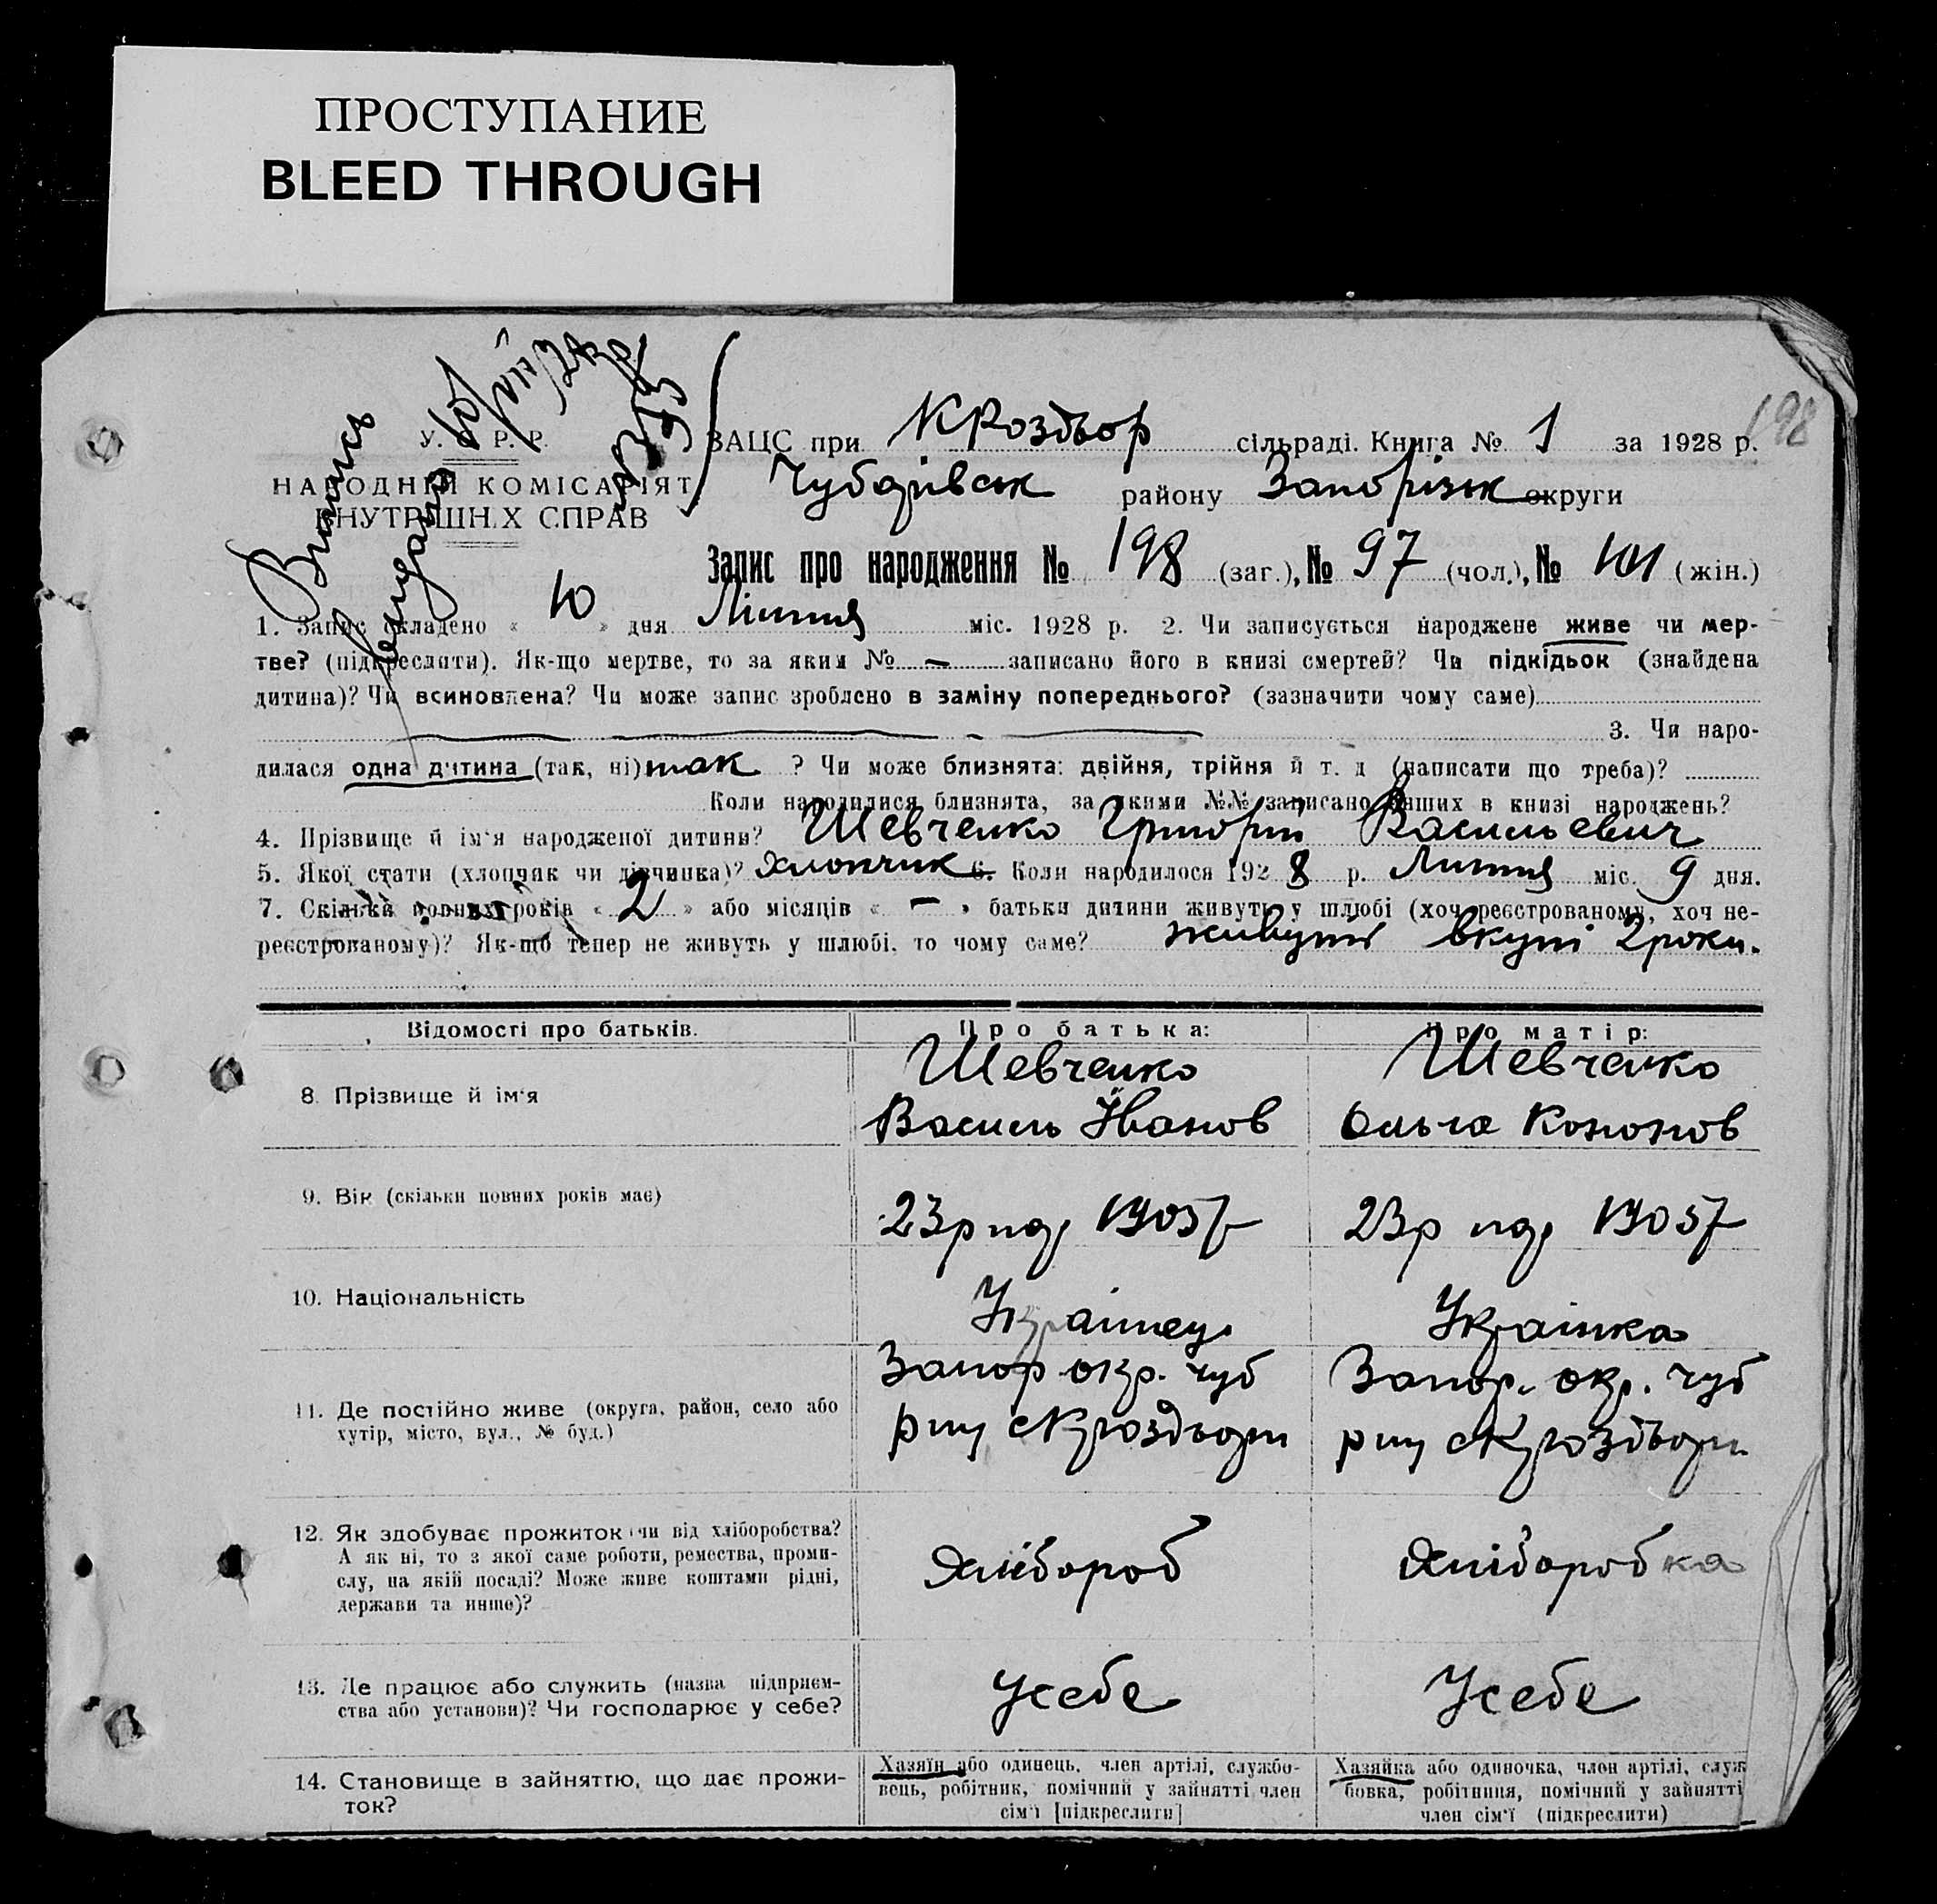 ПРОСТУПАНИЕ
BLEED THROUGH
198
У. С. Р. Р.
НАРОДНІЙ КОМІСАРІЯТ
ВНУТРІШНІХ СПРАВ
Випись
ЗАЦС при КРоздьор сільраді. Книга № 1 за 1928 р.
Чубарівськ району Запоріськ округи
Запис про народження № 198 (заг.), № 97 (чол.), № 101 (жін.)
1. Запис складено « 10 » дня Липня міс. 1928 р. 2. Чи записується народжене живе чи мер-
тве? (підкреслити). Як-що мертве, то за яким № — записано його в книзі смертей? Чи підкідьок (знайдена
дитина)? Чи всиновлена? Чи може запис зроблено в заміну попереднього? (зазначити чому саме)
3. Чи наро-
дилася одна дитина (так, ні) так ? Чи може близнята: двійня, трійня й т. д (написати що треба)?
Коли народилися близнята, за якими №№ записано інших в книзі народжень?
4. Прізвище й ім'я народженої дитини? Шевченко Григорій Васильевич
5. Якої стати (хлопчик чи дівчинка)? Хлопчик 6. Коли народилося 1928 р. Липня міс. 9 дня.
7. Скільки повних років « 2 » або місяців « – » батьки дитини живуть у шлюбі (хоч реєстрованому, хоч не-
реєстрованому)? Як-що тепер не живуть у шлюбі, то чому саме? живуть вкупі 2 роки.
Відомості про батьків. Про батька: Про матір:
8. Прізвище й ім'я Шевченко Василь Іванов Шевченко Ольга Кононов
9. Вік (скільки повних років має) 23р 1905 23р 1905
10. Національність Українець Українка
11. Де постійно живе (округа, район, село або Запор окр. чуб Запор. окр. чуб
хутір, місто, вул., № буд.)
12. Як здобуває прожиток чи від хліборобства? Хлібороб Хлібробка
А як ні, то з якої саме роботи, ремества, проми-
слу, на якій посаді? Може живе коштами рідні,
держави та инше)?
13. Де працює або служить (назва підприєм- Усебе Усебе
ства або установи)? Чи господарює у себе?
14. Становище в зайняттю, що дає прожи-
ток?
Хазяїн або одинець, член артілі, службо-
вець, робітник, помічний у зайнятті член
сім'ї [підкреслити]
Хазяйка або одиночка, член артілі, служ
бовка, робітниця, помічний у зайнятті
член сім'ї (підкреслити)